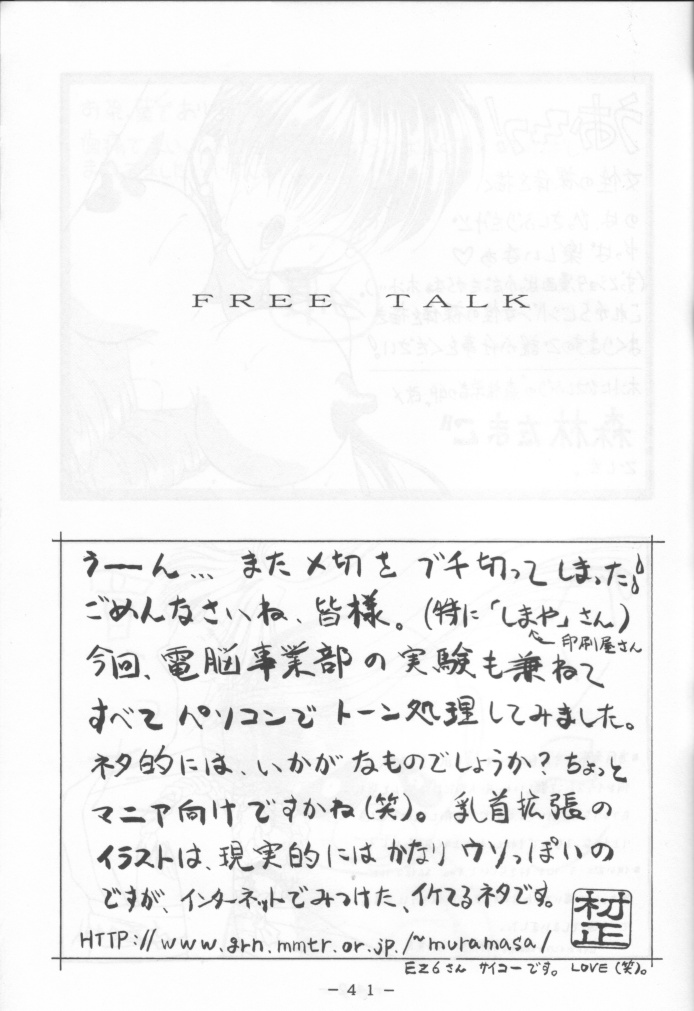 FREE TALK
うーん… また〆切を ブチ切ってしまった!!
ごめんなさいね、皆様。(特に「しまや」さん)
←印刷屋さん
今回、電脳事業部の実験も兼ねて
すべてパソコンでトーン処理してみました。
ネタ的には、いかがなものでしょうか?ちょっと
マニア向けですかね(笑)。乳首拡張の
イラストは、現実的にはかなりウソっぽいの
ですが、インターネットでみつけた、イケてるネタです。
村正
HTTP://www.grn.mmtr.or.jp./~muramasa/
EZ6さん サイコーです。LOVE(笑)。
-41-